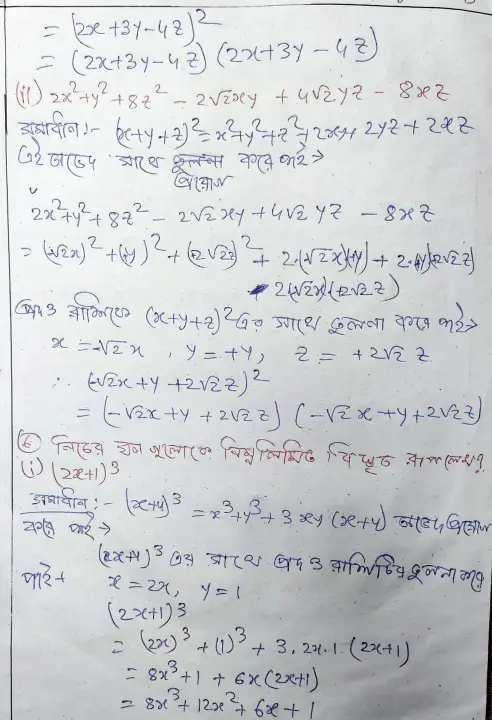 = (2x+3y-4z)²
= (2x+3y-4z) (2x+3y-4z)
(ii) 2x²+y²+8z² - 2√2xy + 4√2yz - 8xz
সমাধান :- (x+y+z)² = x²+y²+z²+2xy+2yz+2xz
এই অভেদ সাথে তুলনা করে পাই →
প্রয়োগ
2x²+y²+8z² - 2√2xy + 4√2yz - 8xz
= (-√2x)² + (+y)² + (+2√2z)² + 2·(-√2x)(+y) + 2·(+y)(+2√2z)
+ 2(-√2x)(+2√2z)
প্রদত্ত রাশিকে (x+y+z)² এর সাথে তুলনা করে পাই→
x = -√2x, y = +y, z = +2√2z
∴ (-√2x+y+2√2z)²
= (-√2x+y+2√2z) (-√2x+y+2√2z)
⑥ নিচের ঘন গুলোকে নিম্নলিখিত বিস্তৃত রূপ লেখ?
(i) (2x+1)³
সমাধান :- (x+y)³ = x³+y³+3xy(x+y) অভেদ প্রয়োগ
করে পাই →
(x+y)³ এর সাথে প্রদত্ত রাশিটির তুলনা করে
পাই→ x = 2x, y = 1
(2x+1)³
= (2x)³ + (1)³ + 3.2x.1 (2x+1)
= 8x³+1 + 6x(2x+1)
= 8x³+12x²+6x+1